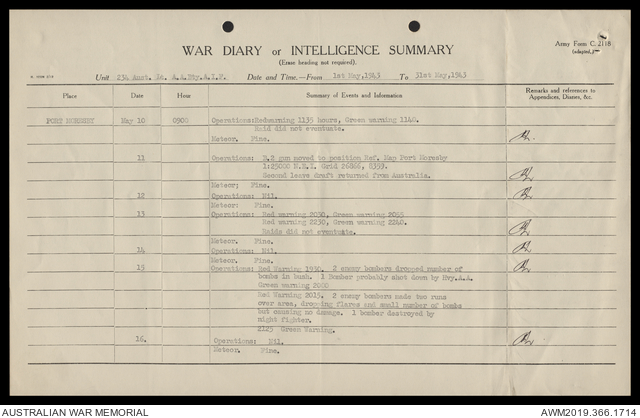 WAR DIARY or INTELLIGENCE SUMMARY
(Erase heading not required).
Army Form C. 2118
(adapted.)
Unit 234 Aust. Lt. A.A.Bty.A.I.F. Date and Time.—From 1st May,1943 To 31st May,1943
Place Date Hour Summary of Events and Information Remarks and references to Appendices, Diaries, &c.
PORT MORESBY May 10 0900 Operations:Redwarning 1135 hours, Green warning 1140.
Raid did not eventuate.
Meteor. Fine.
11 Operations: gun moved to position Ref. Map Port Moresby
1:25000 Grid 26866, 8359.
Second leave draft returned from Australia.
Meteor; Fine.
12 Operations: Nil.
Meteor: Fine.
13 Operations: Red warning 2030, Green warning 2055
Red warning 2230, Green warning 2240.
Raids did not eventuate.
Meteor. Fine.
14 Operations: Nil.
Meteor. Fine.
15 Operations: Red Warning 1930. 2 enemy bombers dropped number of
bombs in bush. 1 Bomber probably shot down by Hvy.A.A.
Green warning 2000
Red Warning 2015. 2 enemy bombers made two runs
over area, dropping flares and small number of bombs
but causing no damage. 1 bomber destroyed by
night fighter.
2125 Green Warning.
16. Operations: Nil.
Meteor. Fine.
AUSTRALIAN WAR MEMORIAL
AWM2019.366.1714